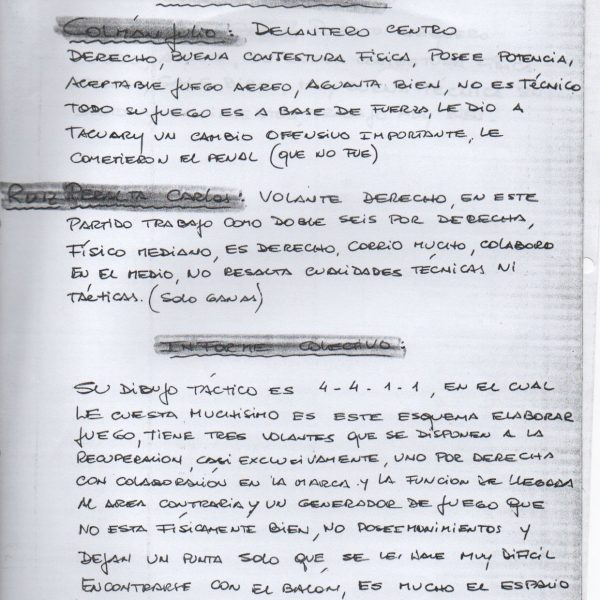 Colmán Julio: Delantero centro
derecho, buena contestura física, posee potencia,
aceptable juego aereo, aguanta bien, no es técnico
todo su juego es a base de fuerza, le dio a
Tacuary un cambio ofensivo importante, le
cometieron el penal (que no fue)
Ruiz Peralta Carlos: volante derecho, en este
partido trabajo como doble seis por derecha,
físico mediano, es derecho, corrio mucho, colaboro
en el medio, no resalta cualidades técnicas ni
tácticas. (solo ganas)
Informe colectivo:
Su dibujo táctico es 4-4-1-1, en el cual
le cuesta muchísimo es este esquema elaborar
juego, tiene tres volantes que se disponen a la
recuperacion, casi exclusivamente, uno por derecha
con colaboración en la marca y la funcion de llegada
al area contraria y un generador de juego que
no esta físicamente bien, no posee movimientos y
dejan un punta solo que se le hace muy dificil
encontrarse con el balon, es mucho el espacio